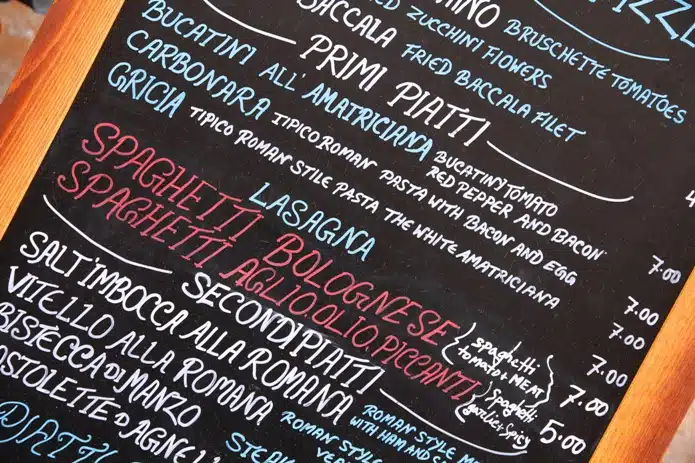 PIZZE
BRUSCHETTE TOMATOES
ZUCCHINI FLOWERS
BACCALA FRIED BACCALA FILET
PRIMI PIATTI
BUCATINI ALL' AMATRICIANA BUCATINY TOMATO RED PEPPER AND BACON 7.00
CARBONARA TIPICO ROMAN PASTA WITH BACON AND EGG 7.00
GRICIA TIPICO ROMAN STILE PASTA THE WHITE AMATRICIANA 7.00
LASAGNA 7.00
SPAGHETTI BOLOGNESE (spaghetti tomato & MEAT 7.00
SPAGHETTI AGLIO.OLIO.PICCANTI (spaghetti garlic & spicy 5.00
SECONDI PIATTI
SALT'IMBOCCA ALLA ROMANA ROMAN STYLE
WITH HAM AND
VITELLO ALLA ROMANA ROMAN STYLE
BISTECCA DI MANZO